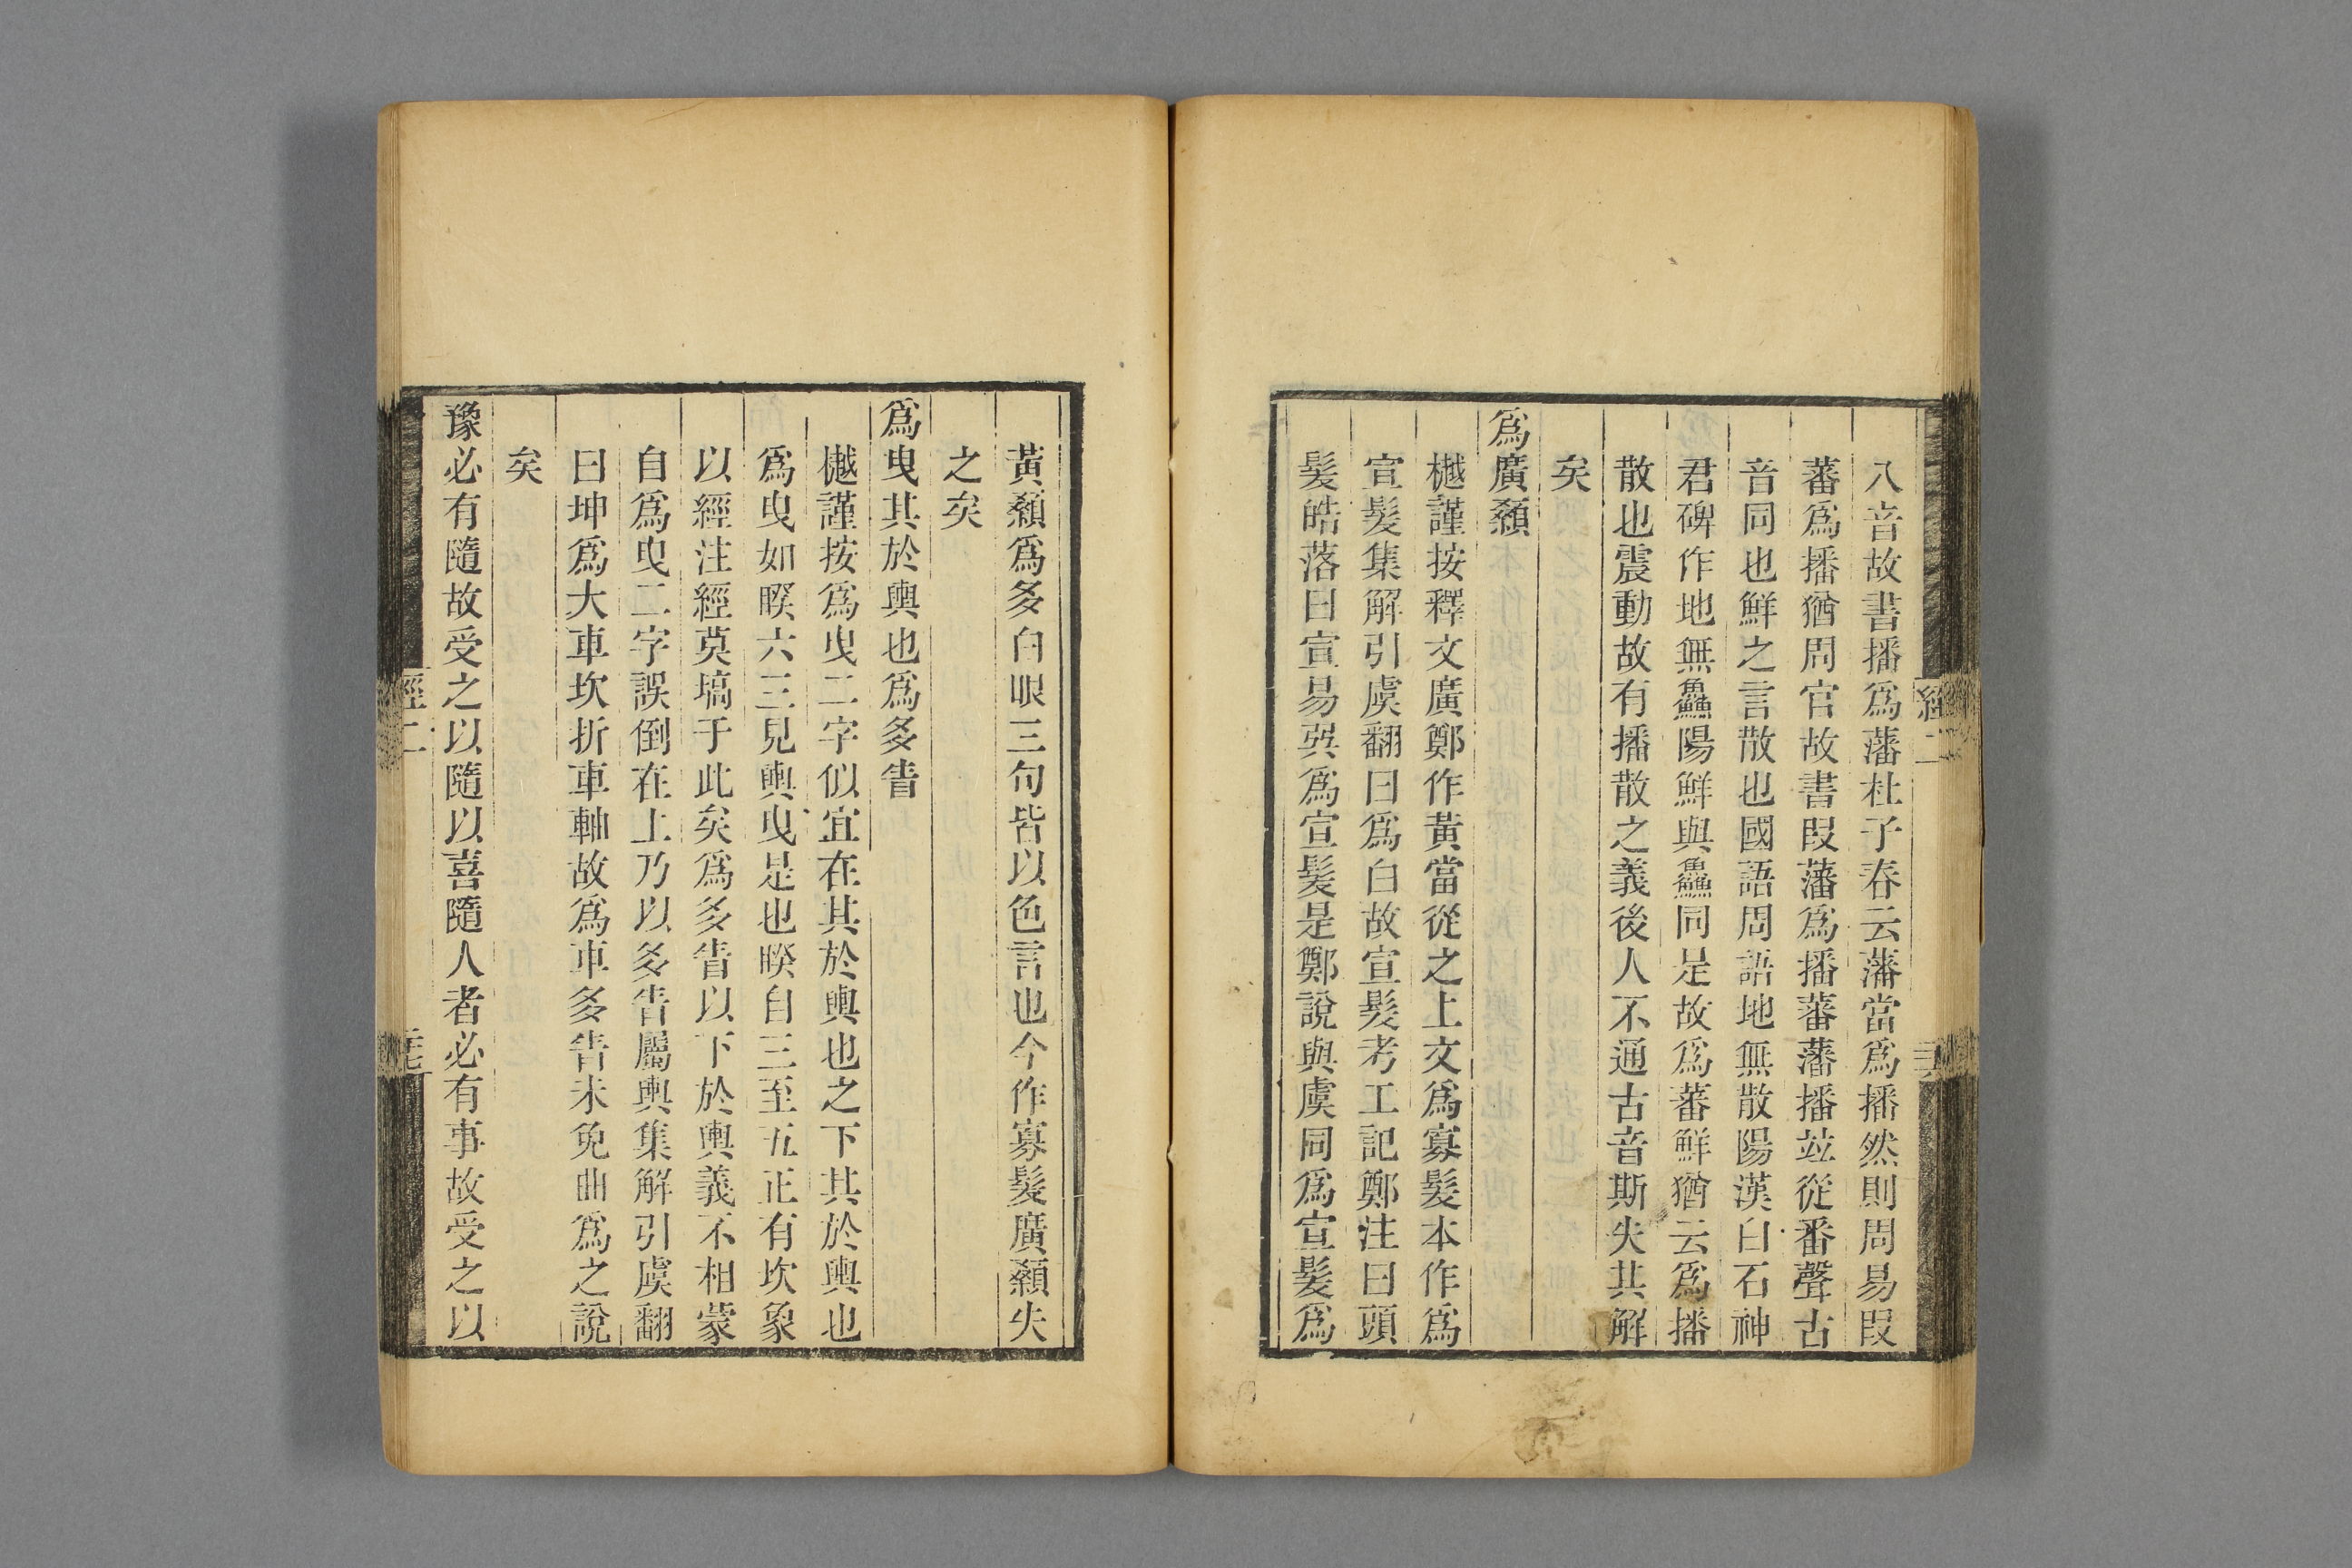 八音故書播爲藩杜子春云藩當爲播然則周易叚
蕃爲播猶周官故書叚藩爲播蕃藩播竝從番聲古
音同也鮮之言散也國語周語地無散陽漢白石神
君碑作地無鱻陽鮮與鱻同是故爲蕃鮮猶云爲播
散也震動故有播散之義後人不通古音斯失其解
矣
爲廣顙
樾謹按釋文廣鄭作黃當從之上文爲寡髮本作爲
宣髮集解引虞翻曰爲白故宣髮考工記鄭注曰頭
髮皓落曰宣易巽爲宣髮是鄭說與虞同爲宣髮爲
黃顙爲多白眼三句皆以色言也今作寡髮廣顙失
之矣
爲曳其於輿也爲多眚
樾謹按爲曳二字似宜在其於輿也之下其於輿也
爲曳如睽六三見輿曳是也睽自三至五正有坎象
以經注經莫塙于此矣爲多眚以下於輿義不相蒙
自爲曳二字誤倒在上乃以多眚屬輿集解引虞翻
曰坤爲大車坎折車軸故爲車多眚未免曲爲之說
矣
豫必有隨故受之以隨以喜隨人者必有事故受之以
經二